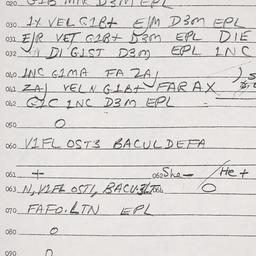 020 GIB MTR D3M EPL
030 1X VEL G1B+ E/M D3M EPL
031 E/R VET G2B+ D3M EPL DIE
032 4 DI GIST D3M EPL INC
040 INC G1MA FA ZAJ
041 ZAJ VELN G1B+ FAR AX
042 G1C INC D3M EPL
050 O
060 V1FL OST3 BACUL DEFA
061 + 062 She – / He +
063 N, V1FL OST1, BACU O
070 FAFO. LTN EPL
080 O
090 O